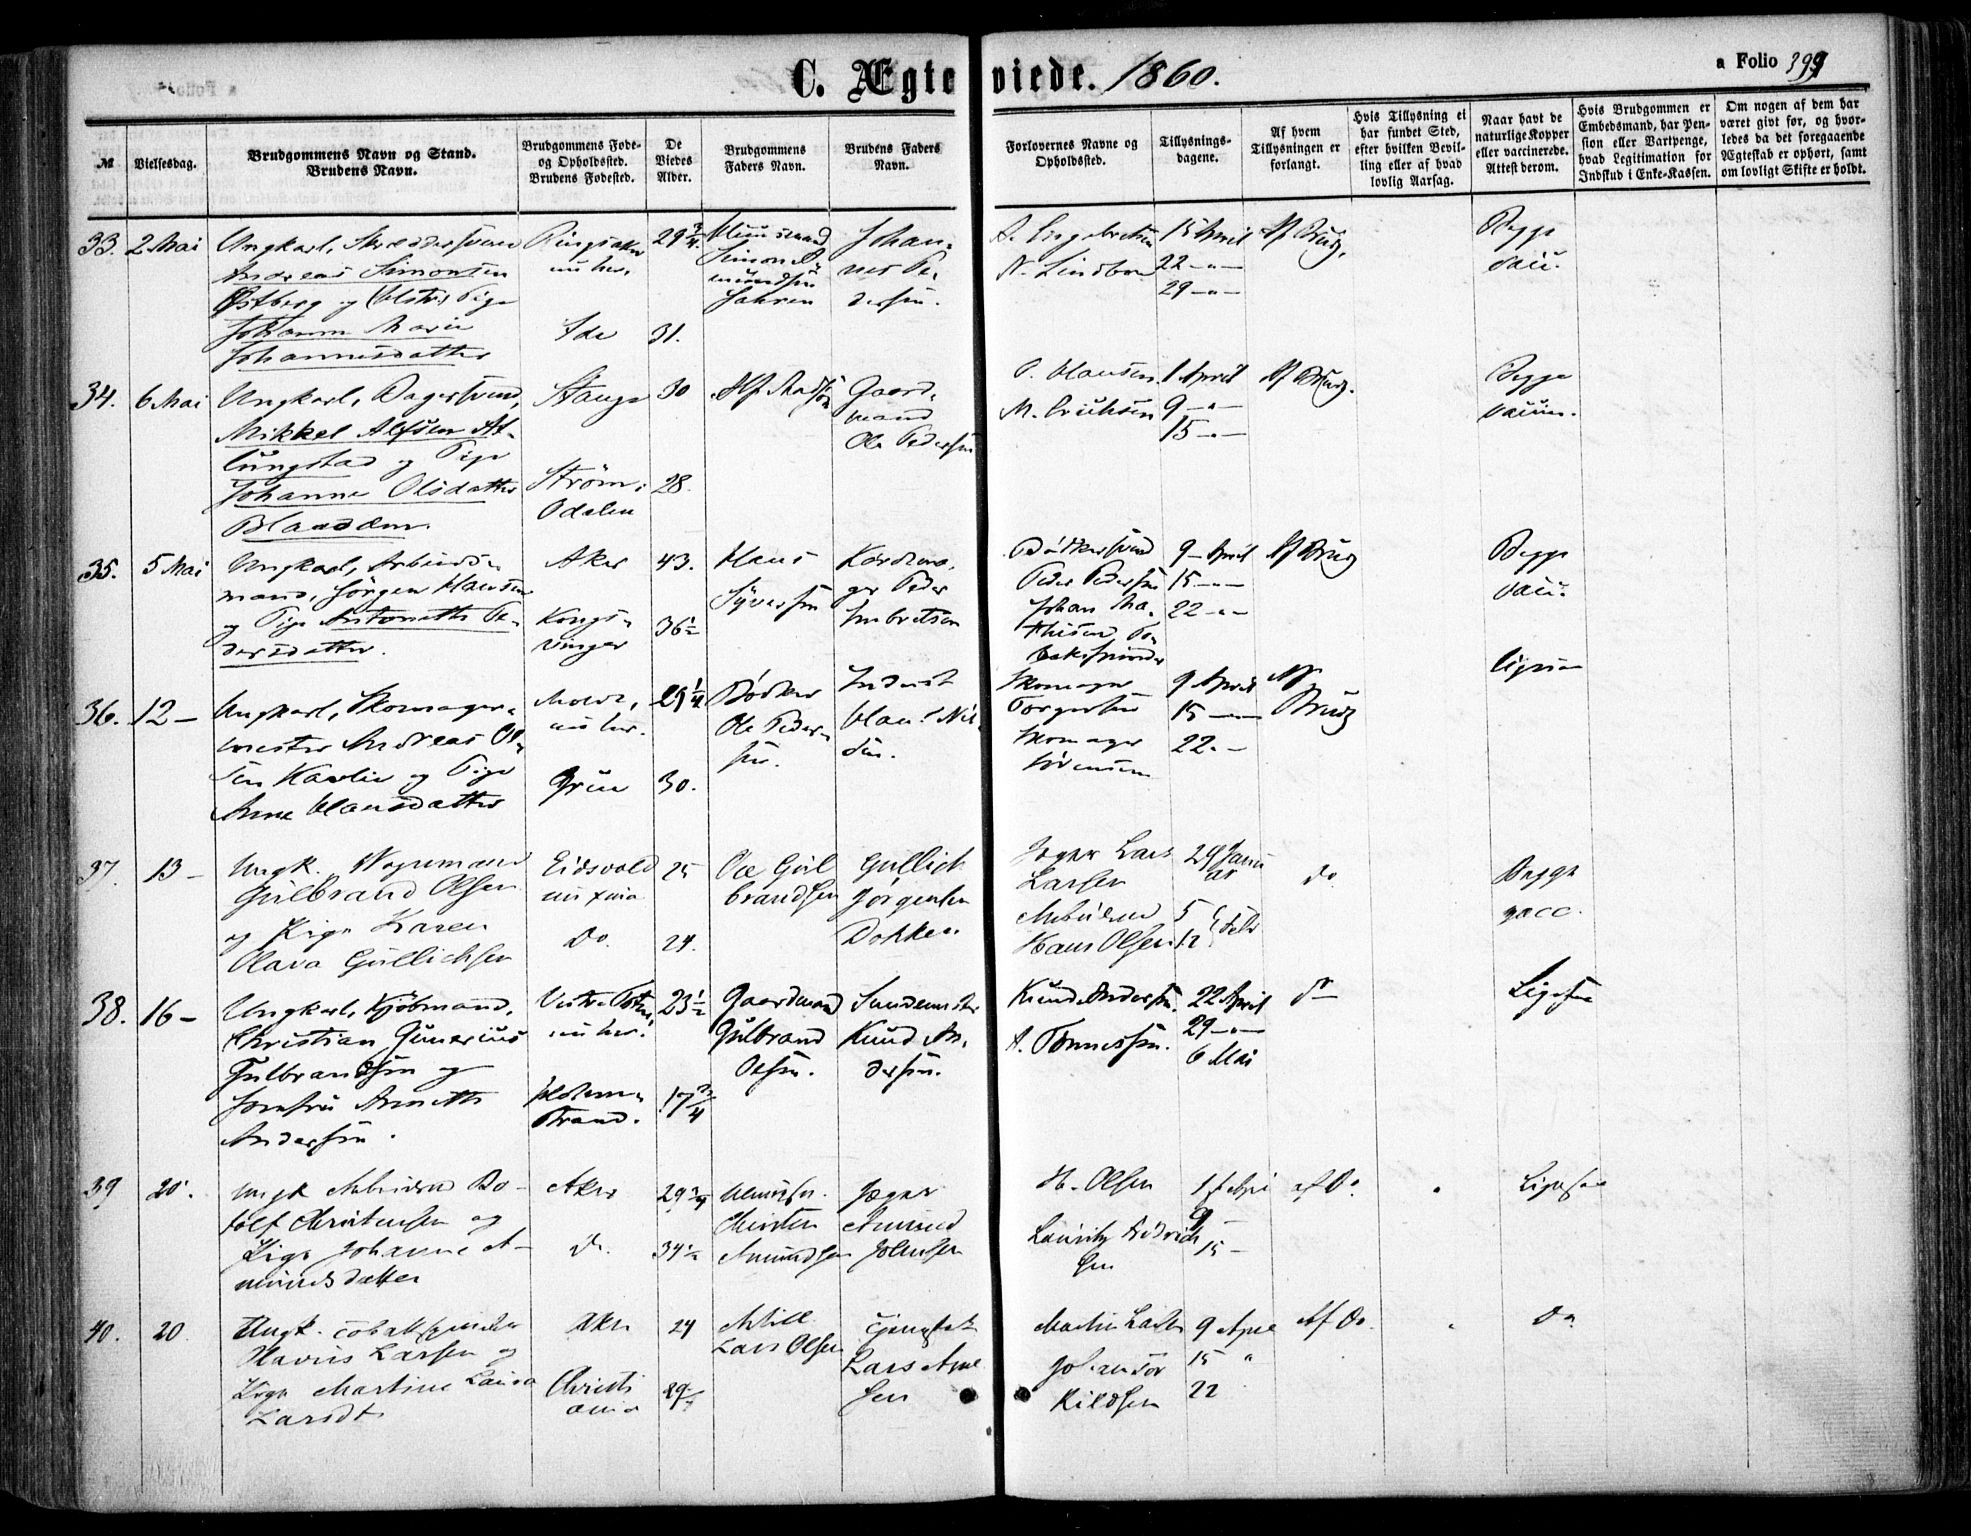 C. Ægteviede. 1860.
a Folio 399
№
Vielsesdag.
Brudgommens Navn og Stand.
Brudens Navn.
Brudgommens Føde-
og Opholdssted.
Brudens Fødested.
De
Viedes
Alder.
Brudgommens
Faders Navn.
Brudens Faders
Navn.
Forlovernes Navne og
Opholdssted.
Tillysnings-
dagene.
Af hvem
Tillysningen er
forlangt.
Hvis Tillysning ei
har fundet Sted,
efter hvilken Bevil-
ling eller af hvad
lovlig Aarsag.
Naar havt de
naturlige Kopper
eller vaccinerede.
Attest derom.
Hvis Brudgommen er
Embedsmand, har Pen-
sion eller Vartpenge,
hvad Legitimation for
Indskud i Enke-Kassen.
Om nogen af dem har
været givt før, og hvor-
ledes da det foregaaende
Ægteskab er ophørt, samt
om lovligt Skifte er holdt.
33. 2 Mai
Ungkarl, Skræddersvend
Andreas Simonsen
Østberg og Pige
Johanne Marie
Johannesdatter
Ringsaker
Ide
29 3/4
31.
Huusmand
Simon
Johan-
nes Pe-
dersen.
A. Engebretsen
N. Lindboe
15 April
22 -"-
29 -"-
Af Brudg.
Begge
vacc.
34. 6 Mai
Ungkarl, Bagersvend,
Mikkel Alfsen At-
lungstad og Pige
Johanne Olsdatter
Blaadden
Stange
Strøm i
Odalen
30
28.
Alf Madsøn
Gaard-
mand
Ole Pedersen
P. Clausen
M. Erichsen
1 April
9 -"-
15 -"-
Af Brudg.
Begge
vaccin.
35. 5 Mai
Ungkarl, Arbeids-
mand, Jørgen Hansen
og Pige Antonette Pe-
dersdatter.
Aker
Kongs-
vinger
43.
36 1/2
Hans
Syversen
Peder
Embretsen
Bødkersvend
Peder Pedersen
Johan Ma-
thisen, To-
baksspinder
9 April
15 -"-
22 -"-
Af Brudg
Begge
vacc.
36. 12 -
Ungkarl, Skomager-
mester Andreas Ol-
sen Havlie og Pige
Anne Clausdatter
Molde,
Grue
29 1/4
30.
Bødker
Ole Peder-
sen.
Inderst
Claus Nil-
sen.
Skomager
Torgersen
Skomager
Sørensen
9 April
15 -
22. -
Af
Brudg
Ligesaa
37. 13 -
Ungk. Vognmand
Gulbrand Olsen
og Pige Karen
Olava Gullichsen
Eidsvold
Do.
25
24.
Ole Gul
brandsen
Gullich
Jørgensen
Dokken
Jæger Lars
Larsen
Hans Olsen
29 Janu
ar
5
12
Febr
do
Begge
vacc.
38. 16 -
Ungkarl, Kjøbmand,
Christian Gunerius
Gulbrandsen og
Jomfru Annette
Andersen.
Vestre Toten,
Holmestrand.
23 1/2
17 3/4
Gaardmand
Gulbrand
Olsen.
Knud An-
dersen.
Knud Andersen.
A. Tønnesen.
22 April
29 -"-
6 Mai
do
Ligesaa
39 20.
Ungk Arbeidsm Ro-
dolf Christensen og
Pige Johanne A-
mundsdatter
Aker
do.
29 3/4
34 1/2
Huusm.
Christen
Amundsen
Jæger
Amund
Johnsen
H. Olsen
Lauritz Fredrich
sen
1 April
9 -
15 -
af Do.
"
Ligesaa
40. 20
Ungk. Tobakspinder
Olavus Larsen og
Pige Martine Laura
Larsdt
Aker
Christi
ania
24
29
Lars Olsen
Lars
sen
Martin Larsen
Johan Tor
kildsen
9 Apr
15 "
22
Af Do.
"
Do